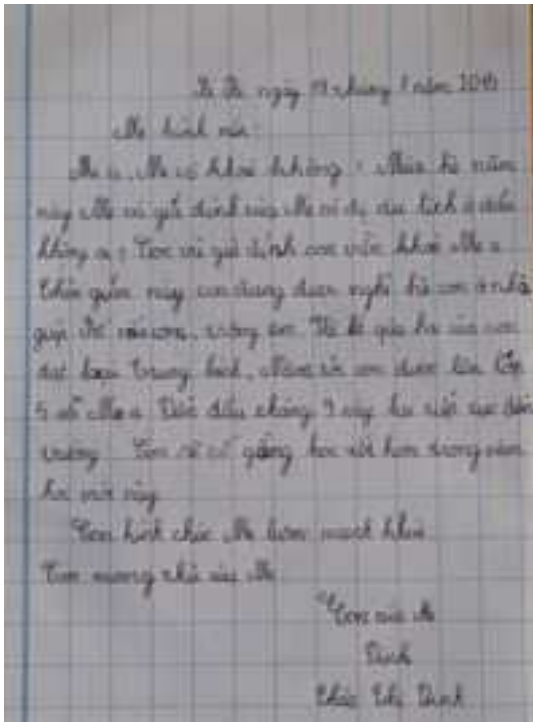 ngày 19 tháng 7 năm 2019
Mẹ kính mến.
Mẹ ạ, Mẹ có khoẻ không? Mùa hè năm
này Mẹ và gia đình của Mẹ có đi du lịch ở đâu
không ạ? Con và gia đình con vẫn khoẻ Mẹ ạ
Thời gian này con đang được nghỉ hè con ở nhà
giúp nấu cơm, trông em. kết quả học của con
đạt loại trung bình. Năm tới con được lên lớp
5 rồi Mẹ ạ. Đến đầu tháng 9 này học tiếp tục đến
trường. Con sẽ cố gắng học tốt hơn trong năm
học mới này
Con kính chúc Mẹ luôn mạnh khoẻ.
Con mong thư của Mẹ
Con của Mẹ
Dinh
Thị Dinh